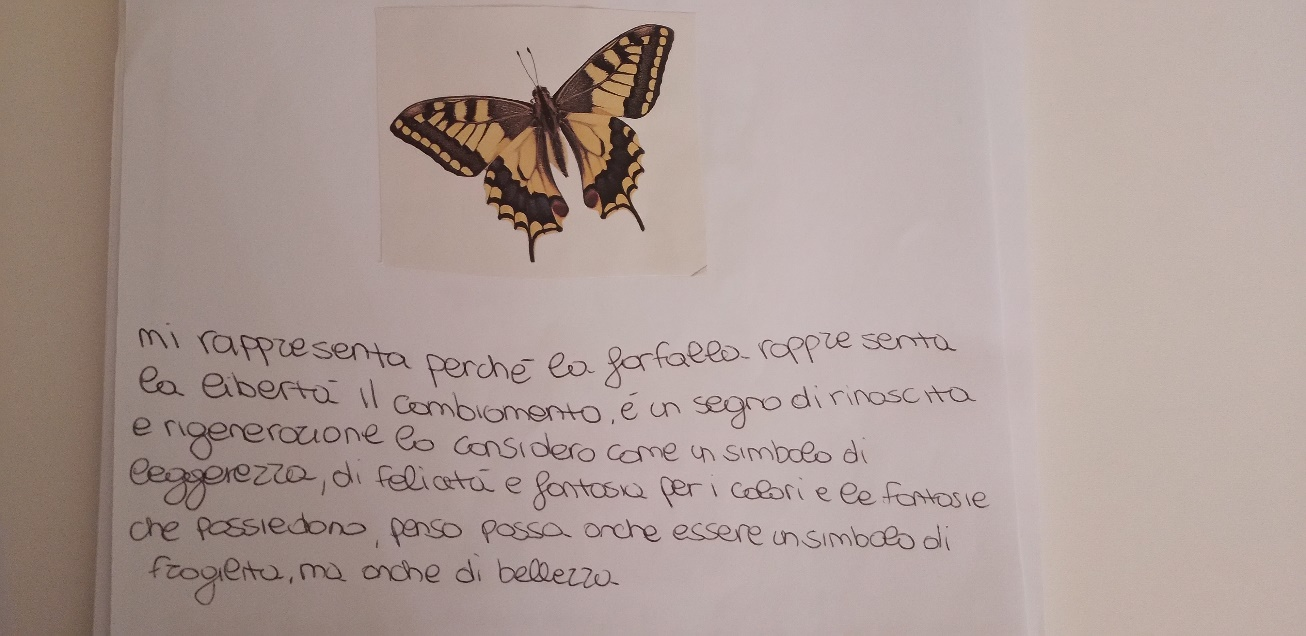 mi rappresenta perché la farfalla rappresenta
la libertà il cambiamento, é un segno di rinascita
e rigenerazione la considero come un simbolo di
leggerezza, di felicità e fantasia per i colori e le fantasie
che possiedono, penso possa anche essere un simbolo di
fragilità, ma anche di bellezza